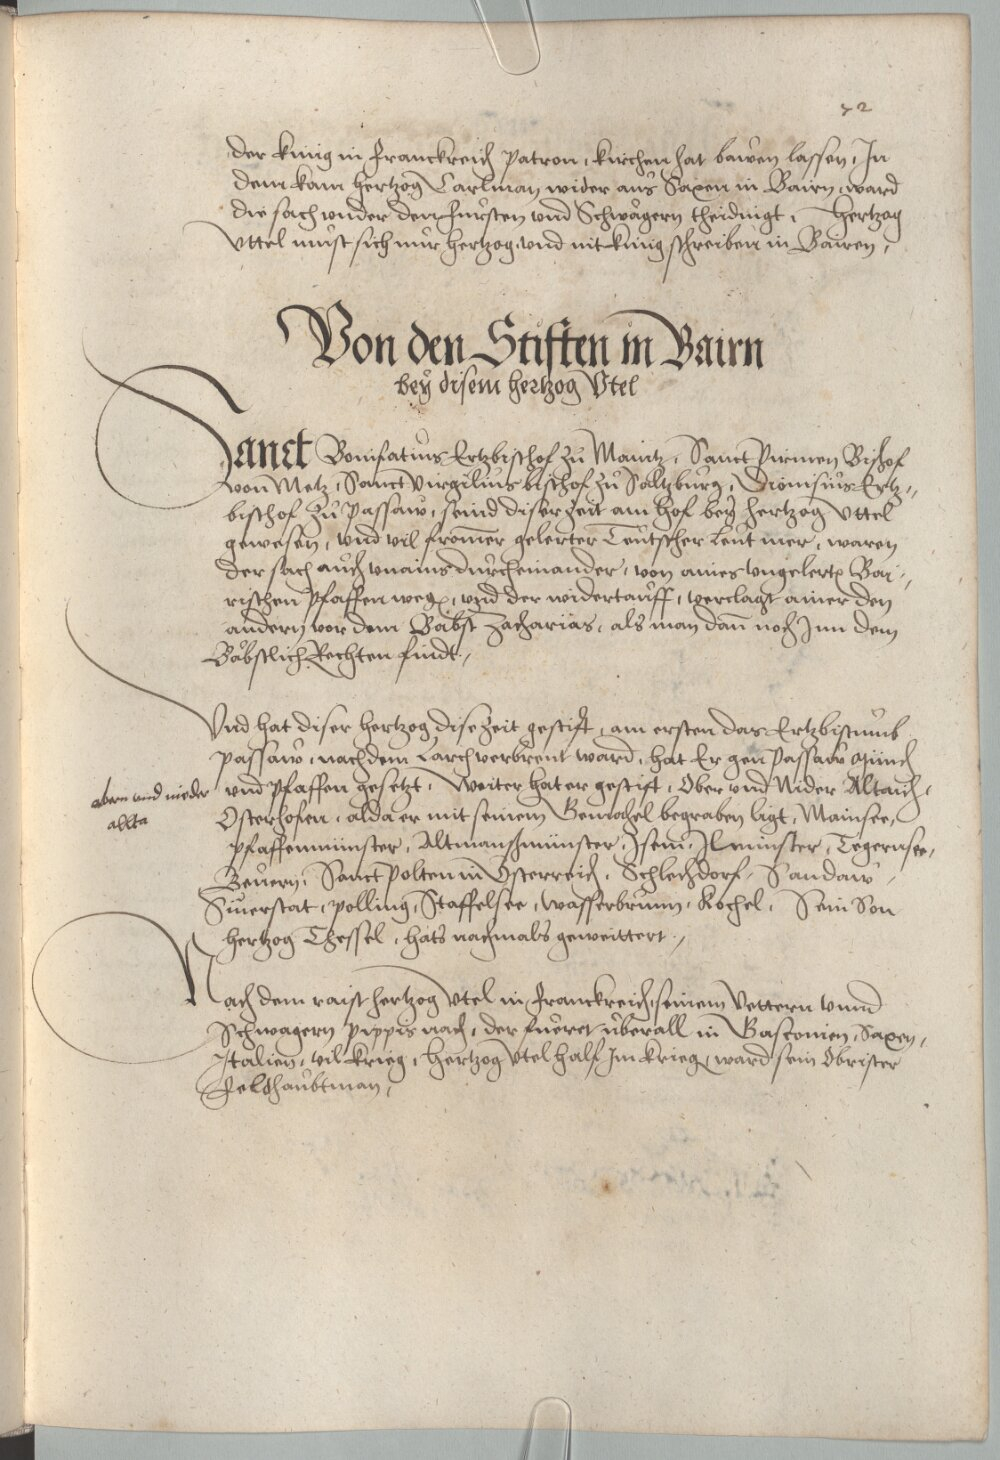 72
der kunig in Franckreich patron, kirchen hat bawen lassen, In
dem kam hertzog Carlman wider aus Saxen in Bairn, ward
die sach under den fursten und Schwägern theidingt, hertzog
Uttel must sich nur hertzog, und nit kunig schreiben in Bairen,
Von den Stifften in Bairn
beÿ disem hertzog Utel
Sanct Bonifatius Ertzbischof zu Maintz, Sanct Pirmen Bischof
von Metz, Sanct Virgilius bischof zu Saltzburg, Dionisius Ertz-
bischof zu passaw, seind diser zeit am hof beÿ hertzog Uttel
gewesen, und vil from̅er gelerter Teutscher leut mer, waren
der sach auch unains durcheinander, von aines ungelertn Bai-
rischen pfaffen wegn, und der widertauff, verclagt ainer den
andern vor dem Babst Zacharias, als man dan̅ noch Inn dem
Bäbstlich Rechten findt,
Und hat diser hertzog dise zeit gestifft, am ersten das Ertzbistumb
passaw, nachdem Larch verbrent ward, hat Er gen passaw Münch
und pfaffen gesetzt, Weiter hat er gestifft, Ober und Nider Altaich,
obern und nieder
allta
Osterhofen, alda er mit seinem Gemahel begraben ligt, Mainsee,
pfaffenmünster, Altmanshmünster, Isem, Ilmünster, Tegernsee,
Beuern, Sanct polten in Österreich, Schlechdorf, Sandaw,
Siverstat, polling, Staffelsee, wasserbrunn, Kochel, Sein Son
hertzog Thessel, hats nachmals geweittert,
Nach dem raist hertzog Utel in Franckreich, seinem Vettern unnd
Schwagern pippis nach, der fueret überall in Basconien, Saxen,
Italien, vil krieg, hertzog Utel half Im krieg, ward sein Obrister
Feldhaubtman,